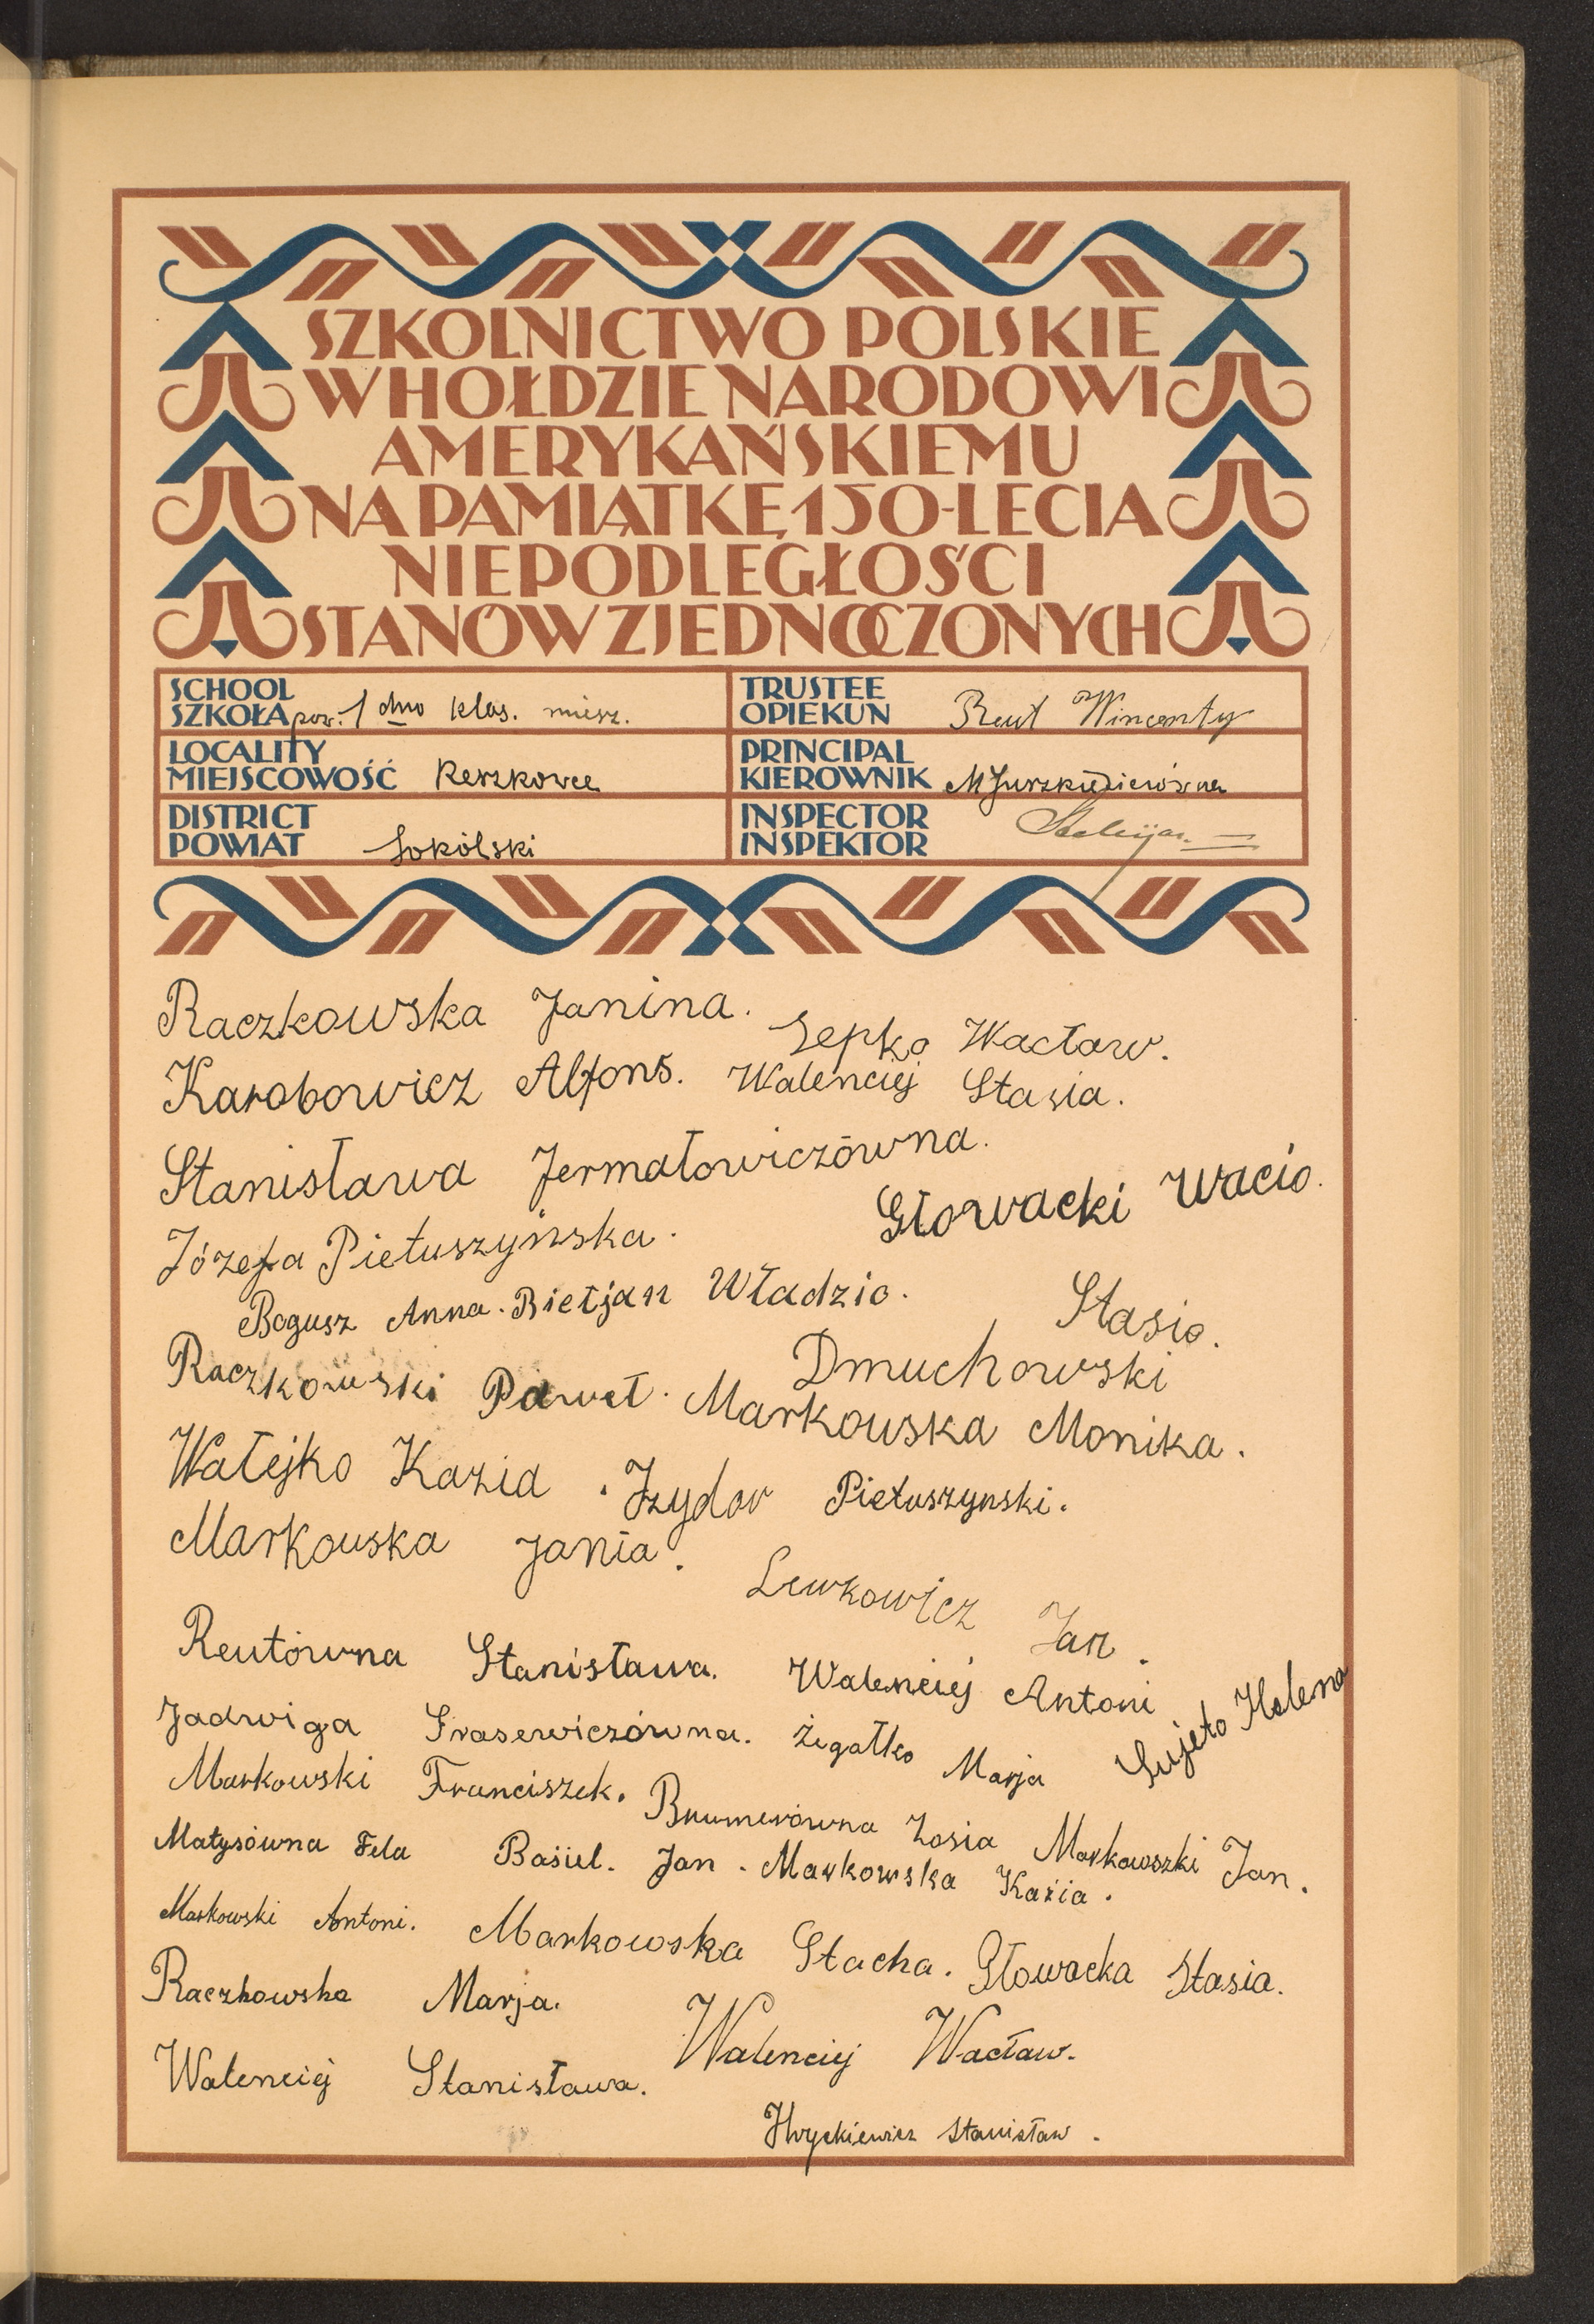 SZKOLNICTWO POLSKIE
W HOŁDZIE NARODOWI
AMERYKAŃSKIEMU
NA PAMIĄTKĘ 150-LECIA
NIEPODLEGŁOŚCI
STANÓW ZJEDNOCZONYCH
SCHOOL
SZKOŁA pow. 1 dno klas. miesz.
TRUSTEE
OPIEKUN Reut Wincenty
LOCALITY
MIEJSCOWOŚĆ Reszkowce
PRINCIPAL
KIEROWNIK
DISTRICT
POWIAT Sokólski
INSPECTOR
INSPEKTOR
Raczkowska Janina.
Sepko Wacław.
Karobowicz Alfons. Walenciej Stasia.
Stanisława Jermałowiczówna.
Głowacki Wacio.
Józefa Pietuszyńska.
Bogusz Anna. Bietjan Władzio.
Stasio.
Dmuchowski
Raczkowski Paweł. Markowska Monika.
Watejko Kazia. Izydor Pietuszynski.
Markouska Jania.
Lewkowicz Jan.
Reutówna Stanisława. Walenciej Antoni
Jadwiga Sraserwiczówna. Żegałko Marja Sujeto Helena
Markowski Franciszek. Brumerówna Zosia Markowszki Jan.
Matysówna Fela Basiul. Jan. Markowska Kazia.
Markowski Antoni. Markowska Stacha. Głowacka Stasia.
Raczkowska Marja.
Walenciej Wacław.
Walenciej Stanisława.
Hryckiewicz Stanisław.